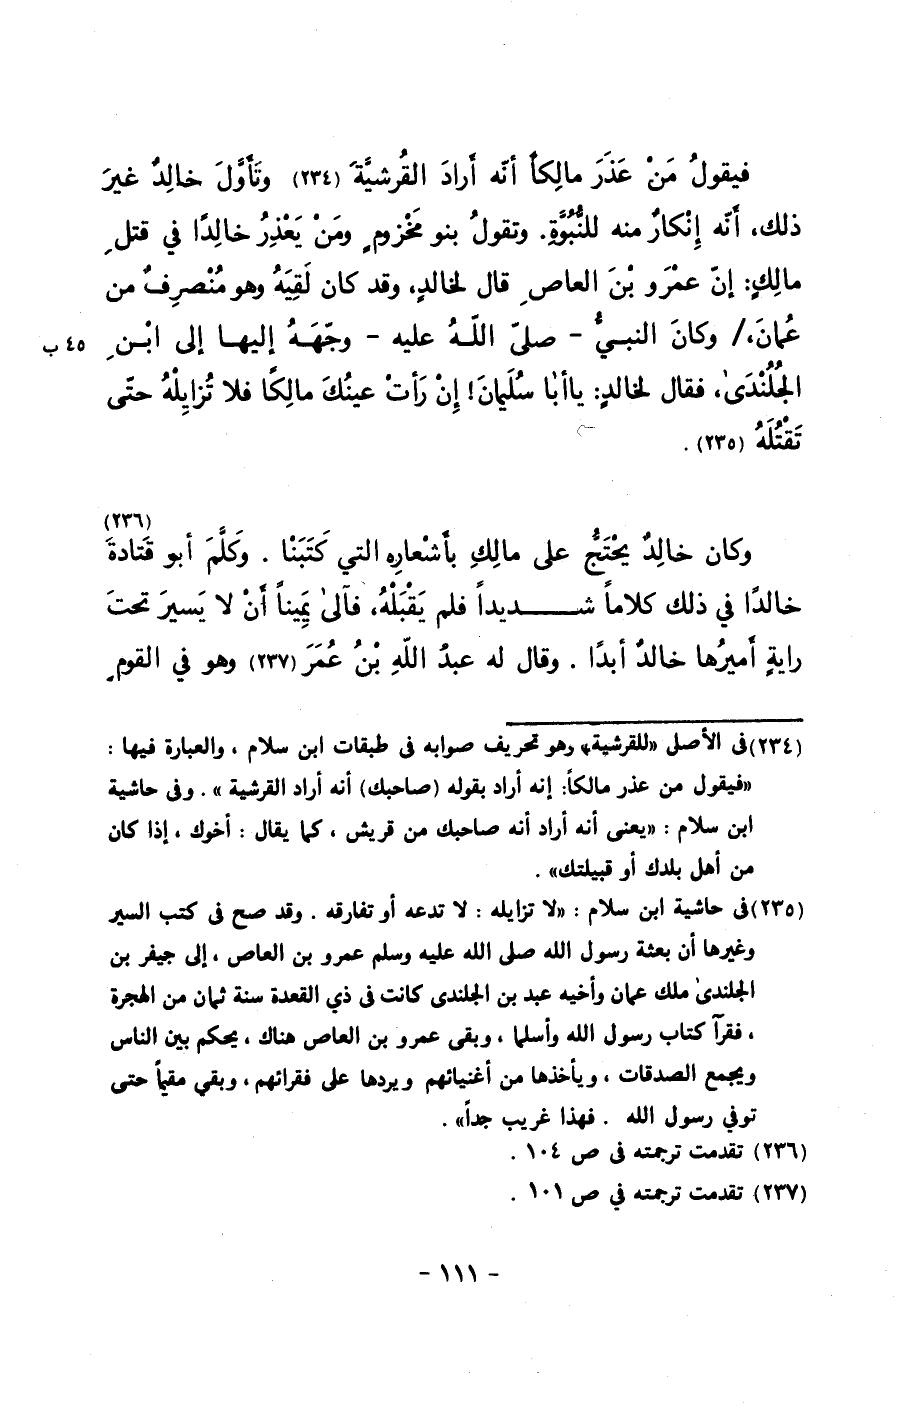 فيقولُ مَنْ عَذَرَ مالِكاً أنّه أَرادَ القُرشيَّةَ (٢٣٤) وتَأَوَّلَ خالِدٌ غيرَ
ذلك، أَنّه إِنْكارٌ منه للنُّبُوَّةِ. وتقولُ بنو مَخْزومٍ ومَنْ يَعْذِرُ خالِدًا في قتلِ
مالِكٍ: إنّ عمْرَو بْنَ العاصِ قال لخالدٍ، وقد كان لَقِيَهُ وهو مُنْصرِفٌ من
عُمانَ،/ وكانَ النبيُّ - صلىّ اللّهُ عليه - وجّهَهُ إليها إلى ابْنِ ٤٥ ب
الجُلُنْدَىٰ، فقال لخالدٍ: ياأبا سُلَيمانَ! إنْ رَأتْ عينُكَ مالِكًا فلا تُزايِلْهُ حتّى
تَقْتُلَهُ (٢٣٥) .
وكان خالِدٌ يحْتَجُّ على مالِكِ بأَشْعارِه التي كَتَبَنْا . وكَلَّمَ أبو قَتادةَ (٢٣٦)
خالدًا في ذلك كلاماً شديداً فلم يَقْبَلْهُ، فآلىٰ يَميناً أَنْ لا يَسيرَ تحتَ
رايةٍ أَميرُها خالدٌ أبدًا . وقال له عبدُ اللّهِ بْنُ عُمَرَ (٢٣٧) وهو في القومِ
(٢٣٤) فى الأصلى «للقرشية» رهو تحريف صوابه فى طبقات ابن سلام ، والعبارة فيها :
«فيقول من عذر مالكاً: إنه أراد بقوله (صاحبك) أنه أراد القرشية » . وفى حاشية
ابن سلام : «يعنى أنه أراد أنه صاحبك من قريش ، كما يقال : أخوك ، إذا كان
من أهل بلدك أو قبيلتك» .
(٢٣٥) فى حاشية ابن سلام : «لا تزايله : لا تدعه أو تفارقه . وقد صح فى كتب السير
وغيرها أن بعثة رسول الله صلى الله عليه وسلم عمرو بن العاص ، إلى جيفر بن
الجلندىٰ ملك عمان وأخيه عبد بن الجلندى كانت فى ذي القعدة سنة ثمان من الهجرة
، فقرآ كتاب رسول الله وأسلما ، وبقى عمرو بن العاص هناك ، يحكم بين الناس
ويجمع الصدقات ، ويأخذها من أغنيائهم ويردها على فقرائهم ، وبقي مقيماً حتى
توفي رسول الله . فهذا غريب جداً» .
(٢٣٦) تقدمت ترجمته فى ص ١٠٤ .
(٢٣٧) تقدمت ترجمته في ص ١٠١ .
- ١١١ -